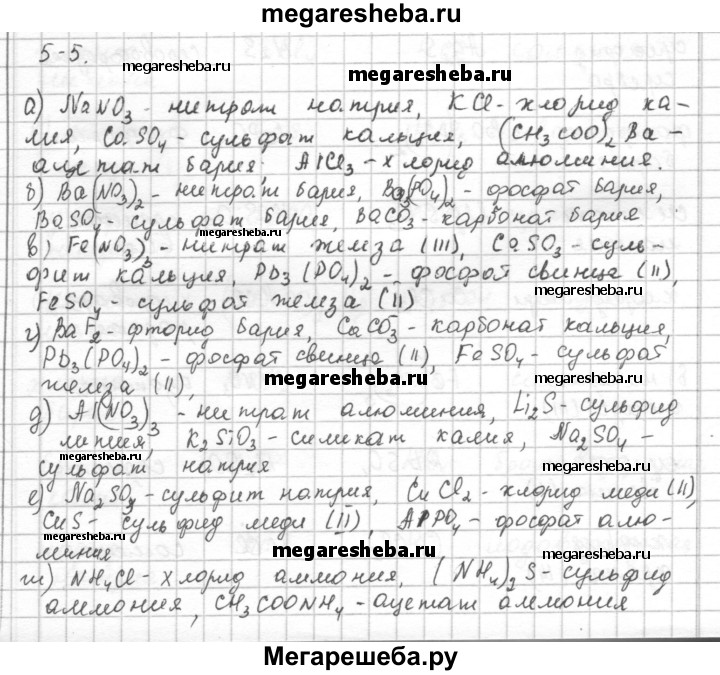 megaresheba.ru
5-5.
megaresheba.ru megaresheba.ru
а) NaNO3 - нитрат натрия, KCl - хлорид ка-
лия, CaSO4 - сульфат кальция, (CH3COO)2Ba -
ацетат бария, AlCl3 - хлорид алюминия.
megaresheba.ru megaresheba.ru
б) Ba(NO3)2 - нитрат бария, Ba3(PO4)2 - фосфат бария,
BaSO4 - сульфат бария, BaCO3 - карбонат бария
megaresheba.ru
в) Fe(NO3)3 - нитрат железа (III), CaSO3 - суль-
фит кальция, Pb3(PO4)2 - фосфат свинца (II),
FeSO4 - сульфат железа (II)
megaresheba.ru megaresheba.ru
г) BaF2 - фторид бария, CaCO3 - карбонат кальция,
Pb3(PO4)2 - фосфат свинца (II), FeSO4 - сульфат
железа (II),
megaresheba.ru
д) Al(NO3)3 - нитрат алюминия, Li2S - сульфид
лития, K2SiO3 - силикат калия, Na2SO4 -
сульфат натрия
megaresheba.ru megaresheba.ru
е) Na2SO3 - сульфит натрия, CuCl2 - хлорид меди (II),
CuS - сульфид меди (II), AlPO4 - фосфат алю-
миния
megaresheba.ru megaresheba.ru megaresheba.ru
ж) NH4Cl - хлорид аммония, (NH4)2S - сульфид
аммония, CH3COONH4 - ацетат аммония
Мегарешеба.ру